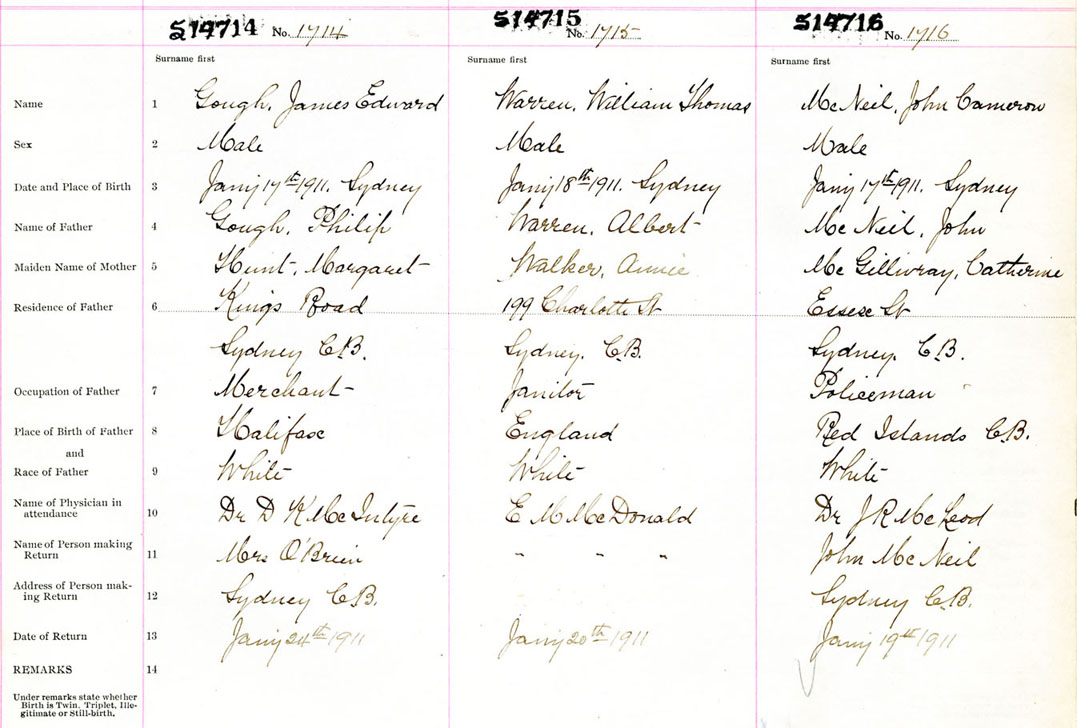 S14714 No. 1714 S14715 No. 1715 S14716 No. 1716
Surname first Surname first Surname first
Name 1 Gough, James Edward Warren, William Thomas McNeil, John Cameron
Sex 2 Male Male Male
Date and Place of Birth 3 Jany 17th 1911. Sydney Jany 18th 1911. Sydney Jany 17th 1911. Sydney
Name of Father 4 Gough, Philip Warren, Albert McNeil, John
Maiden Name of Mother 5 Hunt, Margaret Walker, Annie McGillivray, Catherine
Residence of Father 6 Kings Road 199 Charlotte St Essex St
Sydney C.B. Sydney. C.B. Sydney. C.B.
Occupation of Father 7 Merchant Janitor Policeman
Place of Birth of Father 8 Halifax England Red Islands C.B.
and
Race of Father 9 White White White
Name of Physician in
attendance 10 Dr D K McIntyre E M McDonald Dr J R McLeod
Name of Person making
Return 11 Mrs O'Brien " " " John McNeil
Address of Person mak-
ing Return 12 Sydney C.B. Sydney C.B.
Date of Return 13 Jany 24th 1911 Jany 20th 1911 Jany 19th 1911
REMARKS 14
Under remarks state whether
Birth is Twin, Triplet, Ille-
gitimate or Still-birth.